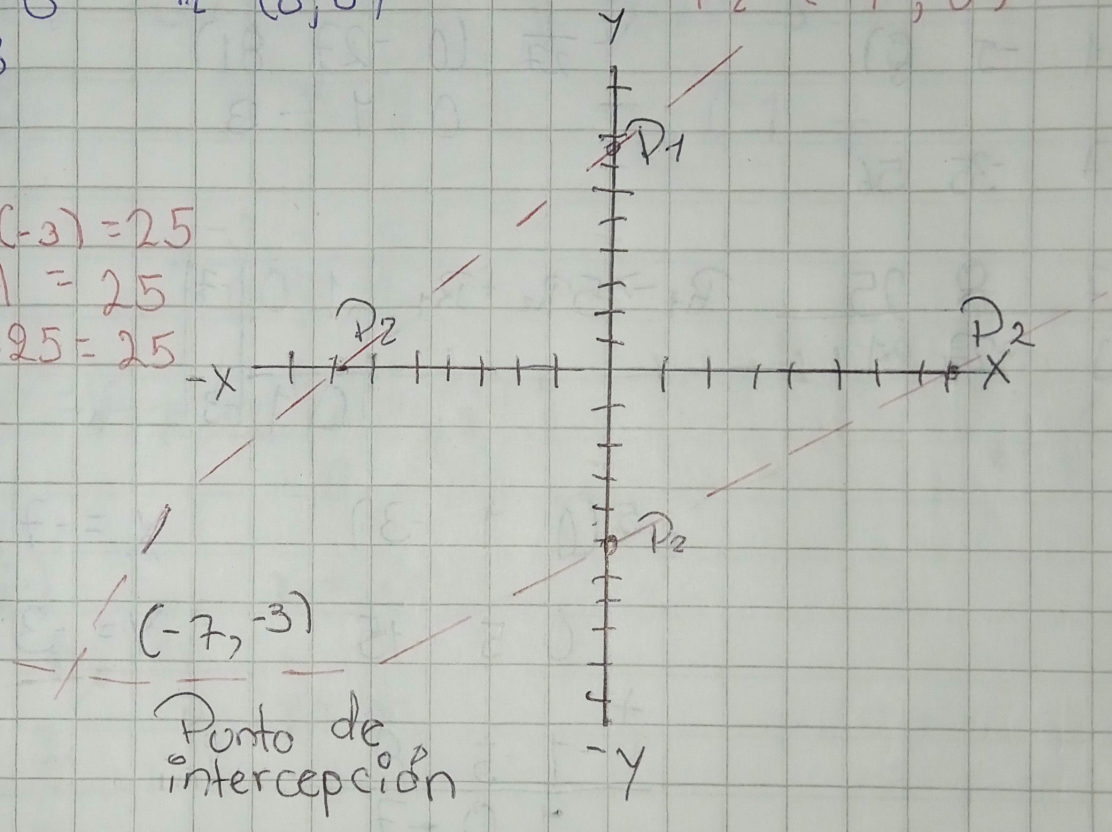 Y
P1
(-3) = 25
= 25
25 = 25
P2
P2
-X
X
P2
(-7, -3)
Punto de
intercepción
-Y